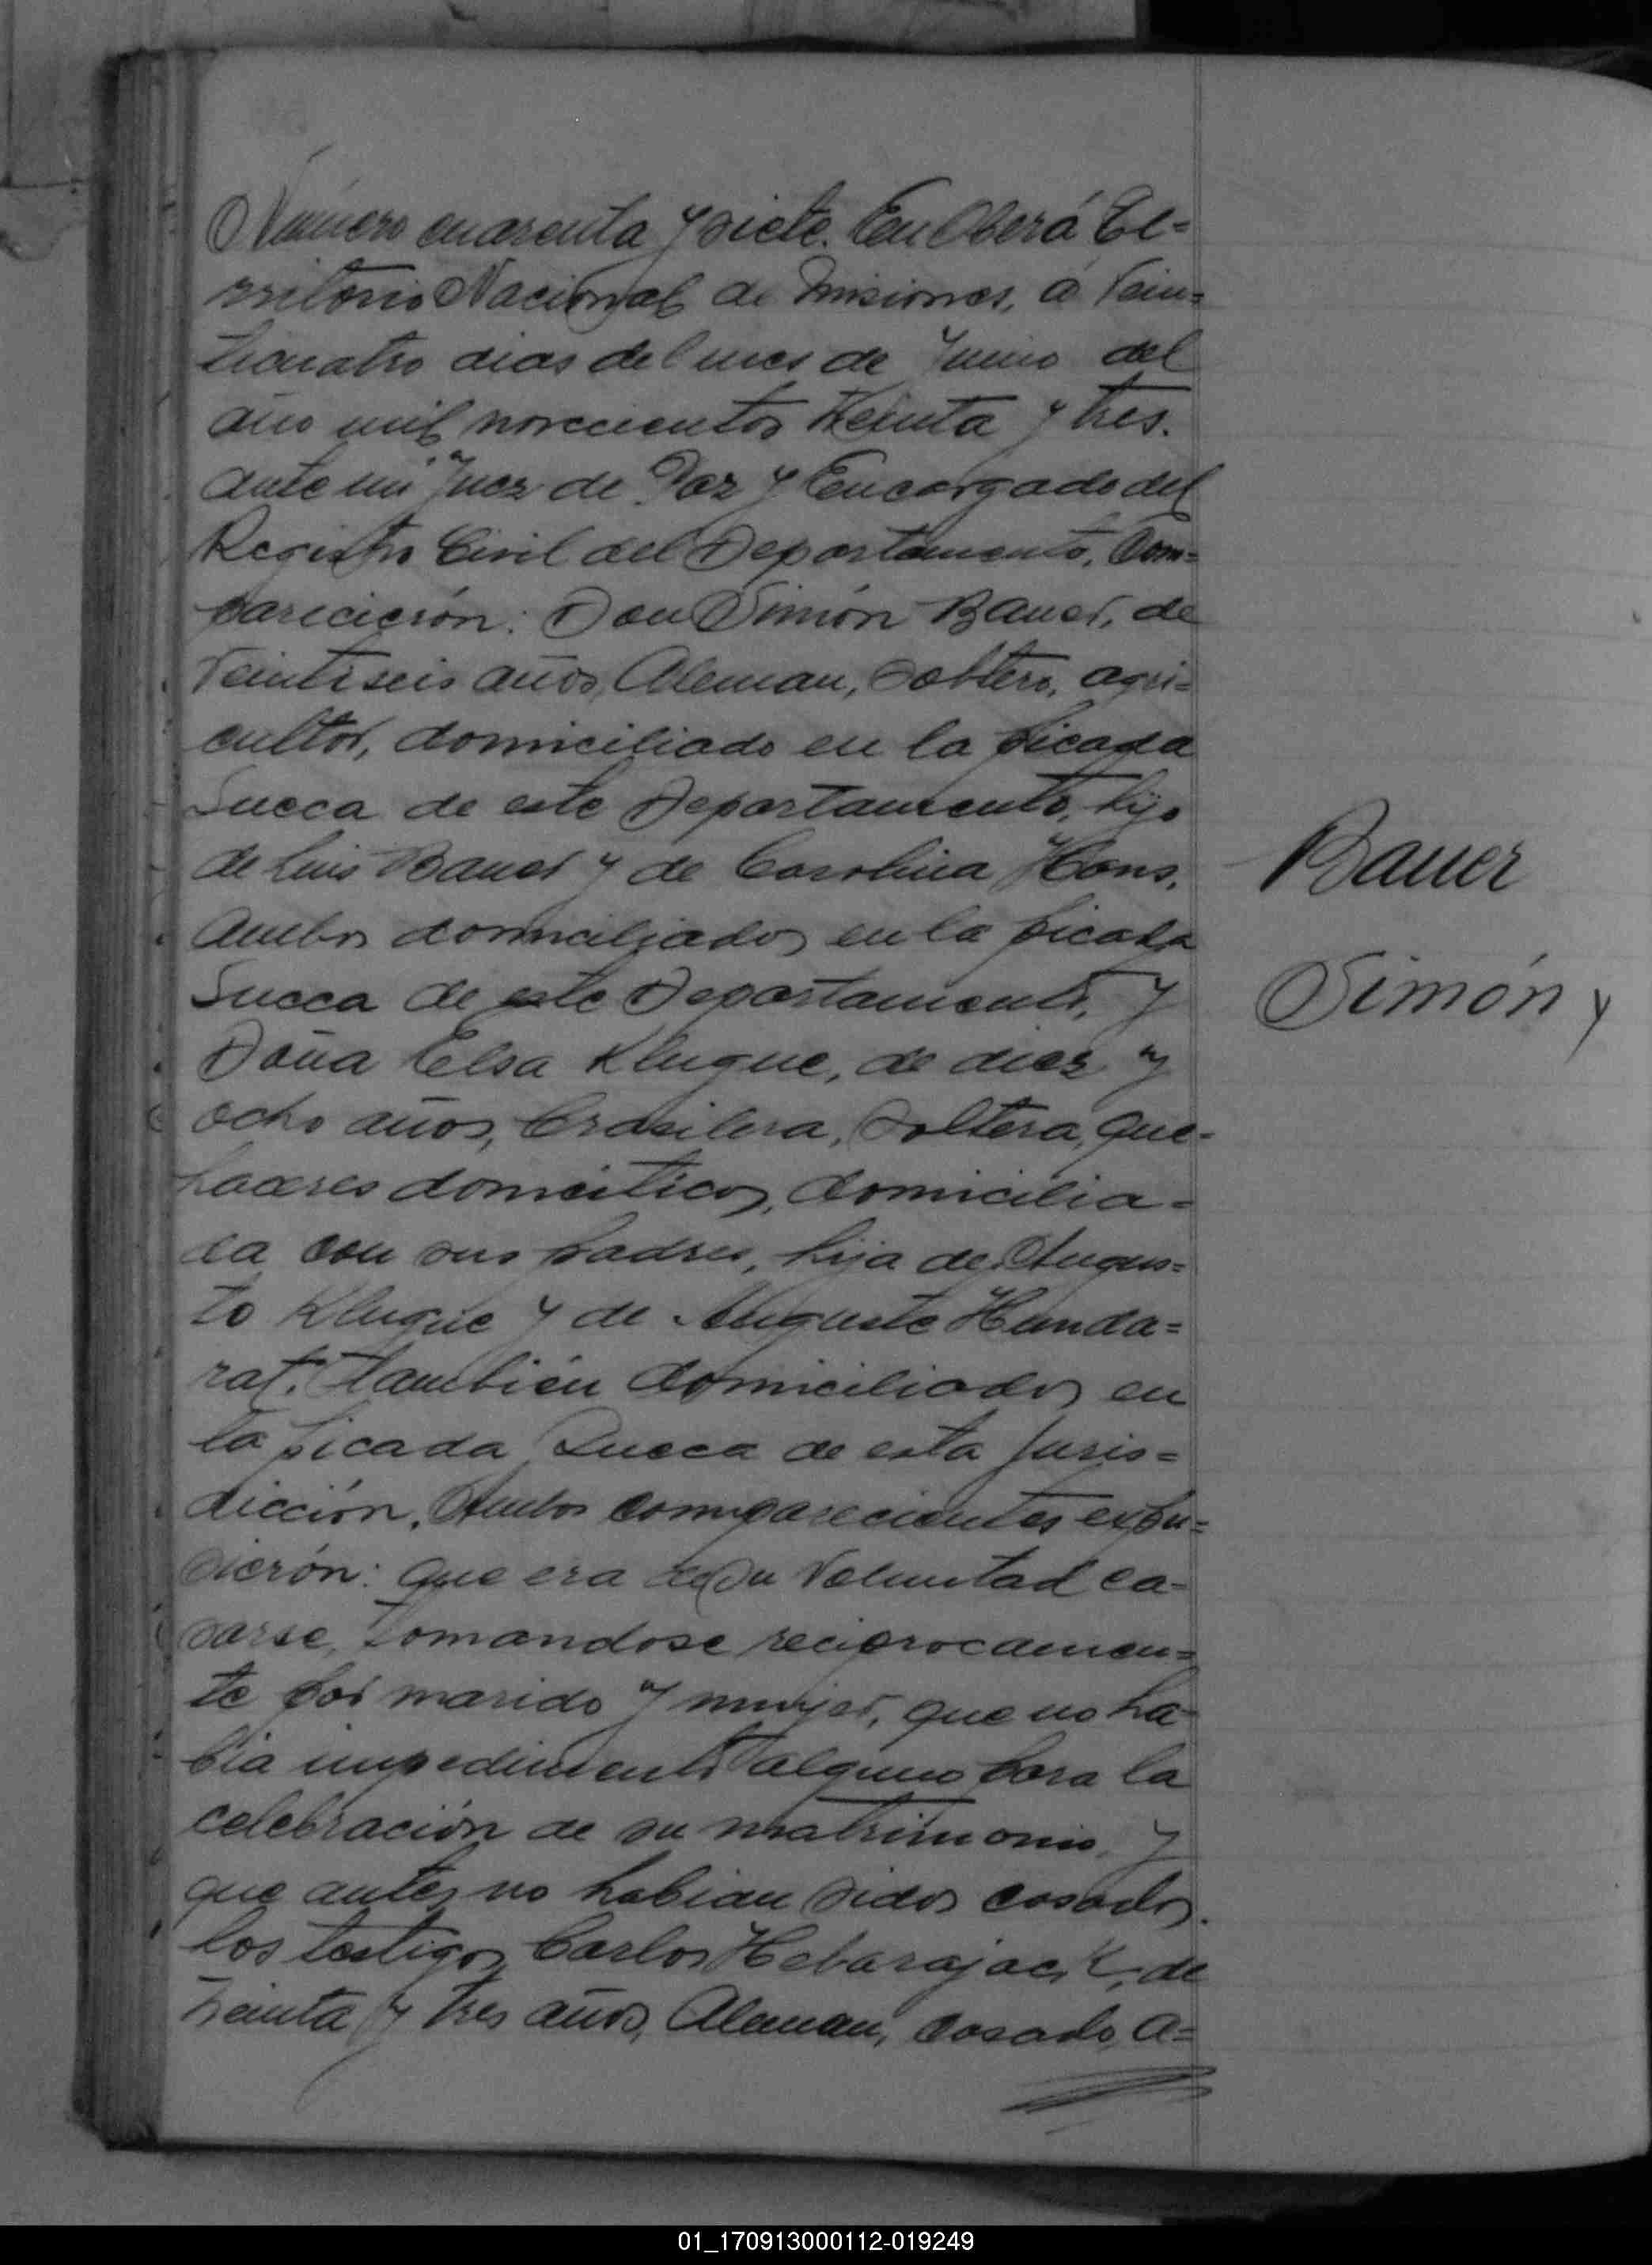 Número cuarenta y siete. En Oberá Te=
rritorio Nacional de Misiones, á Vein=
ticuatro dias del mes de Junio del
año mil novecientos treinta y tres.
ante mi Juez de Paz y Encargado del
Registro Civil del Departamento, Com=
parecierón: Don Simón Bauer, de
Veintiseis años, Aleman, Soltero, agri=
cultor, domiciliado en la picada
Sueca de este Departamento, hijo
de Luis Bauer y de Carolina Hans,
Ambos domiciliados en la picada
Sueca de este Departamento, y
Doña Elsa Klugue, de diez y
ocho años, brasilera, Soltera, que=
haceres domésticos, domicilia=
da con sus padres, hija de Augus=
to Klugue y de Auguste Hunda=
rat. También domiciliados en
la picada Sueca de esta Juris=
dicción. Ambos comparecientes expu=
sierón: que era de su Voluntad ca=
sarse, tomandose reciprocamen=
te por marido y mujer, que no ha=
bia impedimento alguno para la
celebración de su matrimonio, y
que antes no habian sidos casados.
los testigos Carlos de
treinta y tres años, Aleman, casado, a=
Bauer
Simón y
01_170913000112-019249